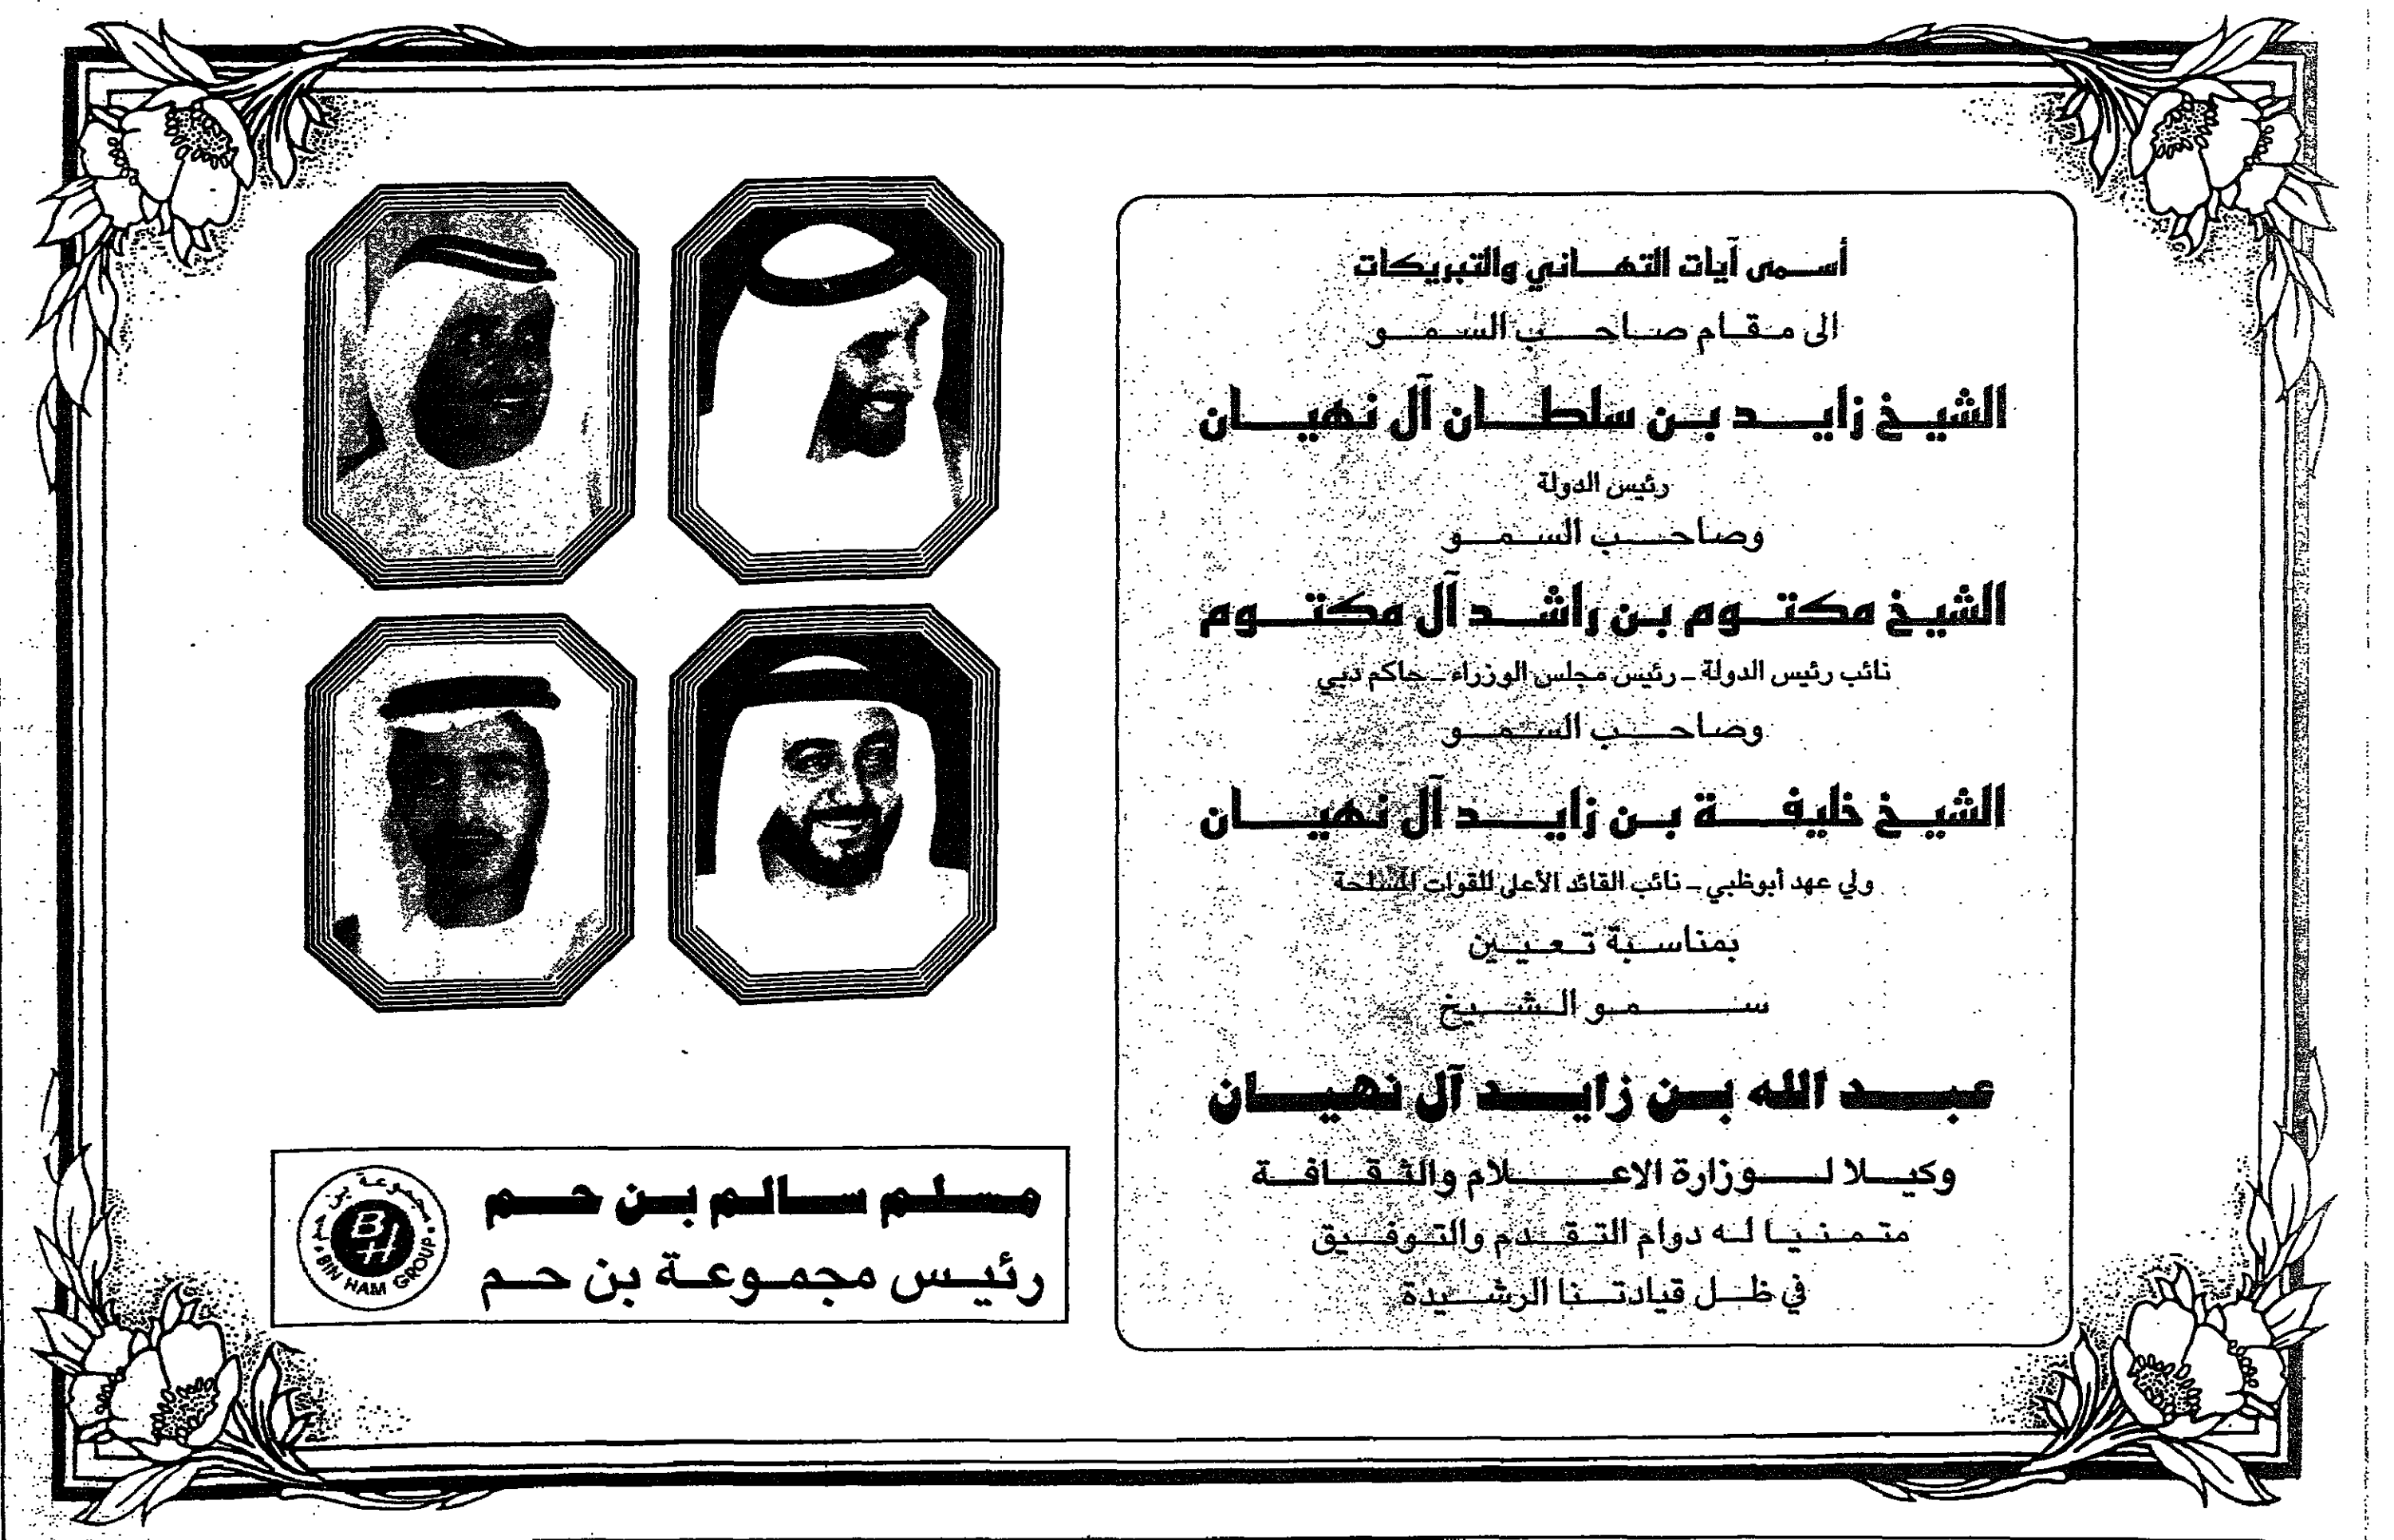 أسمى آيات التهاني والتبريكات
الى مقام صاحب السمو
الشيخ زايد بن سلطان آل نهيان
رئيس الدولة
وصاحب السمو
الشيخ مكتوم بن راشد آل مكتوم
نائب رئيس الدولة - رئيس مجلس الوزراء - حاكم دبي
وصاحب السمو
الشيخ خليفة بن زايد آل نهيان
ولي عهد أبوظبي - نائب القائد الأعلى للقوات المسلحة
بمناسبة تعيين
سمو الشيخ
عبد الله بن زايد آل نهيان
وكيلا لوزارة الاعلام والثقافة
متمنيا له دوام التقدم والتوفيق
في ظل قيادتنا الرشيدة
مسلم سالم بن حم
رئيس مجموعة بن حم
مجموعة بن حم
BH
BIN HAM GROUP